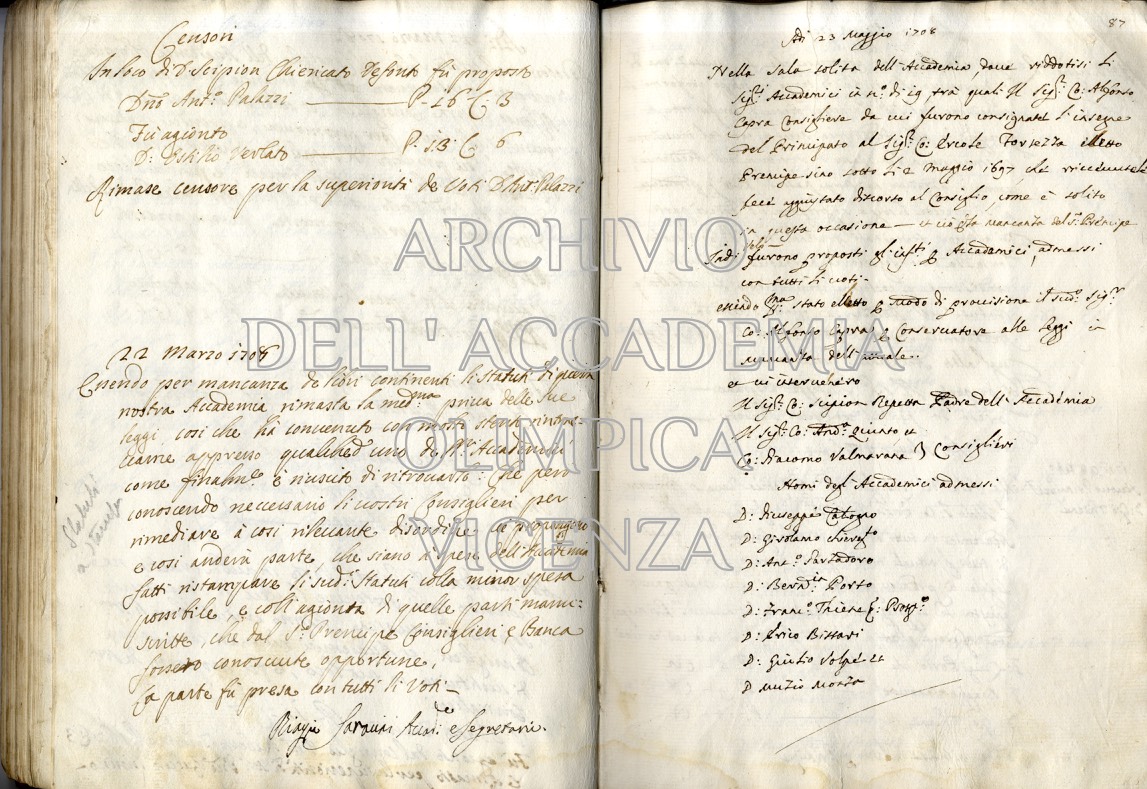 Censori
In loco di D. Scipion Chiericato defonto fù proposto
Dno Ant.º Palazzi P. 16 C. 3
Fù agionto
D: Verlato P. 13 C 6
Rimase censore per la superiorità de Voti D. Ant. Palazzi
22 Marzo 1708
Essendo per mancanza de libri continenti li statuti di questa
nostra Accademia rimasta la med.ma priva delle sue
leggi così che hà convenuto con molti stenti
appresso qualched'uno de N.ri Accademici
come finalm.e è riuscito di ritrovarlo: Che però
conoscendo neccessario li nostri Consiglieri per
rimediare à così rilevante disordine
e così anderà parte, che siano à spese dell'Accademia
fatti ristampare li sud.i Statuti colla minor spesa
possibile, e coll'agionta di quelle parti manu-
scritte, che dal S.r Prencipe Consiglieri e Banca
fossero conosciute opportune,
La parte fù presa con tutti li Voti
Accad.co e Segretario.
Statuti
87
Adi 23 Maggio 1708
Nella Sala solita dell'Accademia, dove riddotisi li
Sig.ri Accademici in n.º di 19 trà quali Il Sig.r Co: Alfonso
Capra Consigliere da cui furono consignate l'insegne
del Principato al Sig.r Co: Ercole eletto
Prencipe sino sotto li 2 Maggio 1697
fece aggiustato discorso al Consiglio come è solito
in questa occasione et ciò p la mancanza del S.r Prencipe
Indi furono proposti gl'infra p Accademici, admessi
con tutti li voti
essendo stato eletto p modo di provisione il sud.o Sig.r
Co: Alfonso Capra p Conservatore alle leggi in
mancanza dell'attuale.
et vi intervenero
Il Sig.r Co: Scipion Repetta Padre dell'Accademia
Il Sig.r Co: And.a Quinto et
Co: Giacomo Valmarana } Consiglieri
Nomi degl'Accademici admessi
D: Giuseppe
D: Girolamo Chierg.to
D: Ant.º
D: Bernd.in Porto
D: Franc.º Thiene
D: Erico Bissari
D: Giulio Volpe et
D Mutio Monza
ARCHIVIO
DELL'ACCADEMIA
OLIMPICA
VICENZA